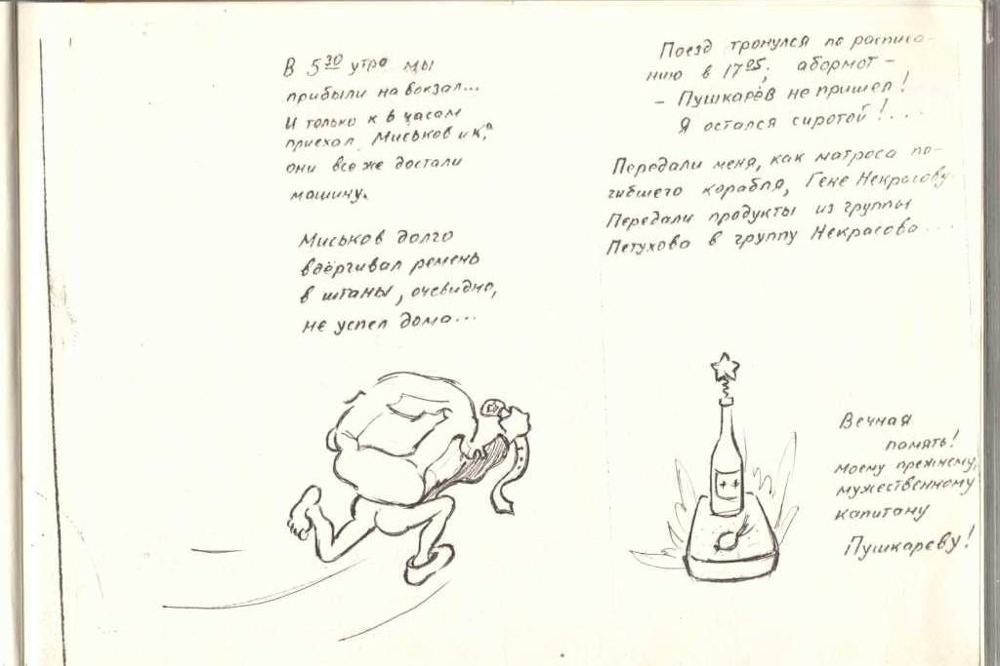 В 5³⁰ утра мы
прибыли на вокзал...
И только к 6 часам
приехал Миськов и К°,
они все же достали
машину.
Миськов долго
вдёргивал ремень
в штаны, очевидно,
не успел дома...
Поезд тронулся по расписа-
нию в 17⁰⁵, абормот -
- Пушкарёв не пришел!
Я остался сиротой!...
Передали меня, как матроса по-
гибшего корабля, Гене Некрасову.
Передали продукты из группы
Петухова в группу Некрасова...
Вечная
память!
моему прежнему,
мужественному
капитану
Пушкареву!